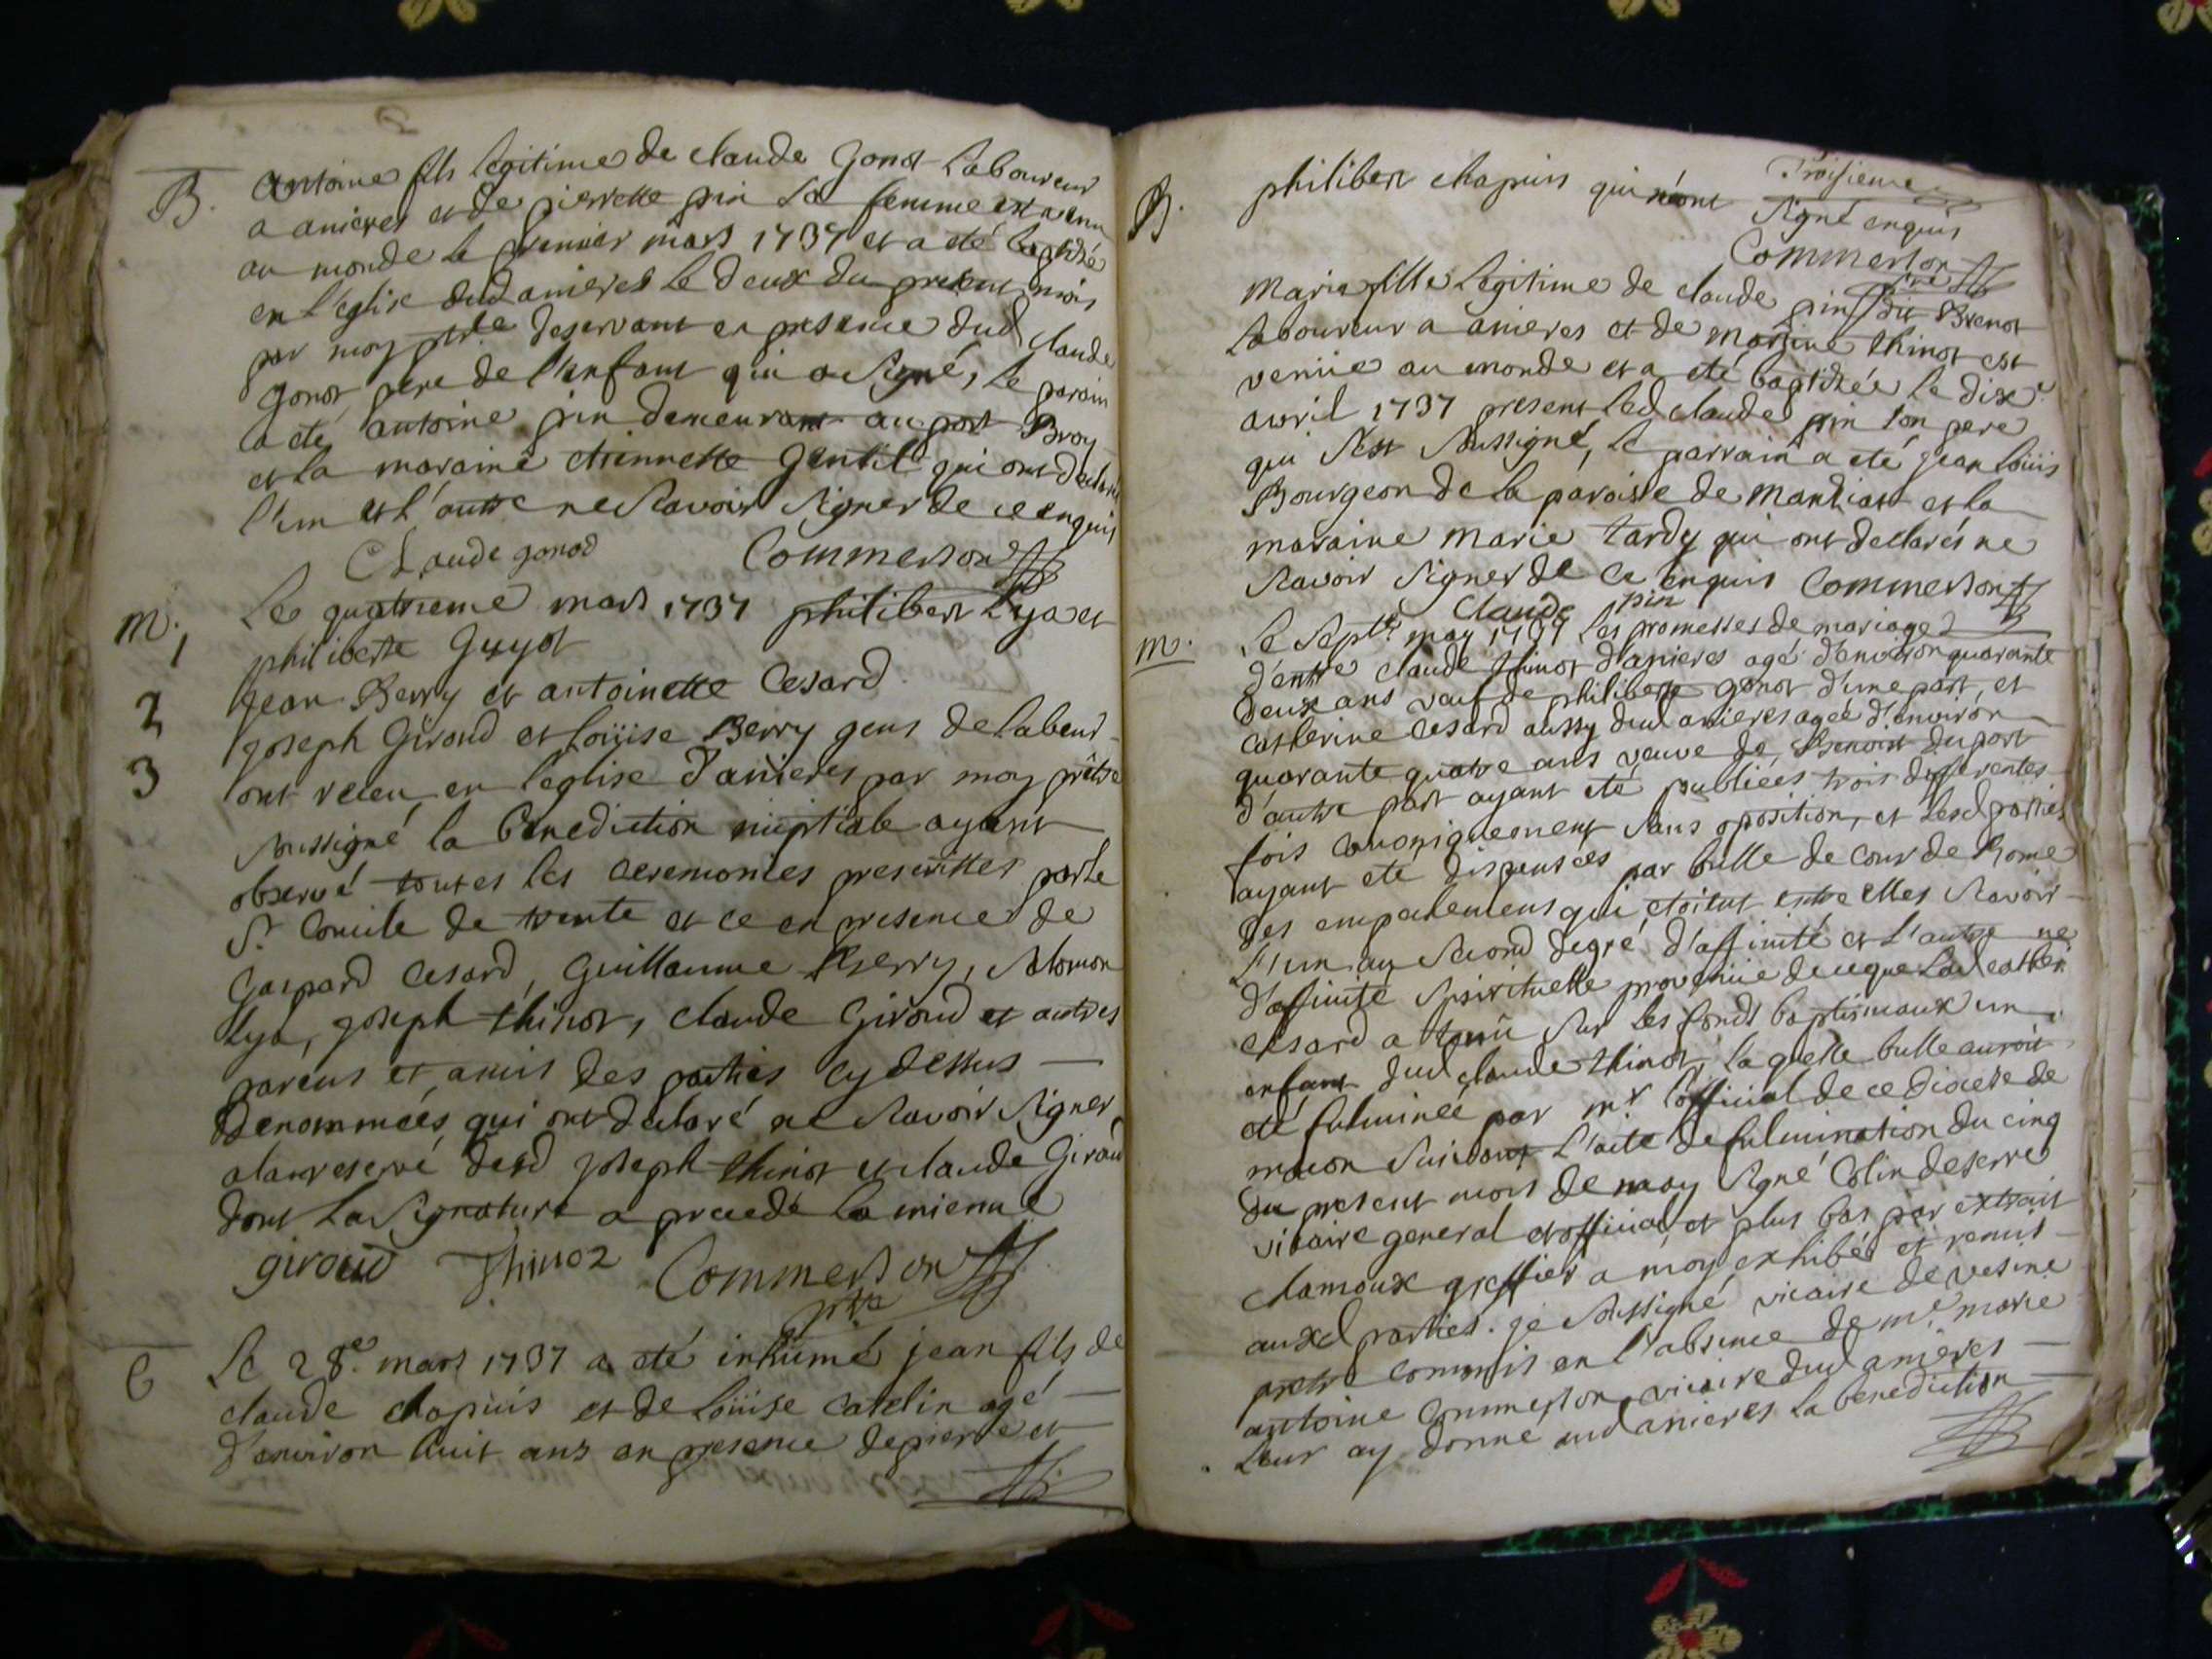 B. Antoine fils legitime de claude Gonot Laboureur
a anieres et de pierrette pin sa femme est venu
au monde le premier mars 1737 et a eté baptizé
en l'eglise dud anieres le deux du present mois
par moy ptre deservant en presence dud claude
Gonot pere de l'enfant qui a signé, le parain
a eté antoine pin demeurant au port Broy
et la maraine etiennette Gentil qui ont declaré
l'un et l'autre ne Savoir Signer de ce enquis
Claude gonod Commerson
m. Le quatrieme mars 1737 philibert Lya et
1 philiberte Guyot
2 Jean Berry et antoinette Cesard
3 Joseph Giroud et Loüise Berry gens de labeur
ont receu en l'eglise d'anieres par moy prêtre
soussigné la benediction nuptiale ayant
observé toutes les ceremonies prescrittes par le
St Concile de trente et ce en presence de
Gaspard Cesard, Guillaume Berry, Salomon
Lya, Joseph thinot, claude Giroud et autres
parens et amis des parties cy dessus
Denommées qui ont declaré ne Savoir Signer
a la reserve desd Joseph thinot et claude Giroud
dont la Signature a precedé la mienne
giroud Thinoz Commerson
ptre
Le 28e mars 1737 a eté inhumé jean fils de
claude chapuis et de Loüise Catelin agé
d'environ huit ans en presence de pierre et
Troisieme
philibert chapuis qui n'ont Signé enquis
Commerson
ptre
B. Marie fille Legitime de claude pin dit Brenot
Laboureur a anieres et de Marine thinot est
venüe au monde et a eté baptizée le dixe
avril 1737 present led claude pin son pere
qui s'est Soussigné, le parrain a eté jean Loüis
Bourgeon de la paroisse de Manziat et la
maraine Marie tardy qui ont declarés ne
Savoir Signer de ce enquis Commerson
Claude pin
m. Le Septe may 1737 les promesses de mariage
d'entre claude thinot d'anieres agé d'environ quarante
deux ans veuf de philiberte Gonot d'une part, et
Catherine Cesard aussy dud anieres agée d'environ
quarante quatre ans veuve de Benoist duport
d'autre part ayant eté publiées trois differentes
fois canoniquement Sans oposition, et lesd parties
ayant eté dispensées par bulle de cour de Rome
des empechemens qui etoient entre elles Savoir
L'un au Second degré d'affinité et l'autre
d'affinité Spirituelle provenüe de ce que lad
Cesard a tenu Sur les fonds baptismaux un
enfant dud claude thinot, la quelle bulle auroit
eté fulminée par mr l'official de ce diocese de
macon Suivant l'acte de fulmination du cinq
du present mois de may Signé Colin deserre
vicaire general et official, et plus bas par extrait
Lamoux greffier a moy exhibée et remis
auxd parties. je Soussigné vicaire de vesine
pretre commis en l'absence de me marie
antoine Commerson vicaire dud anieres
Leur ay donné aud anieres la benediction